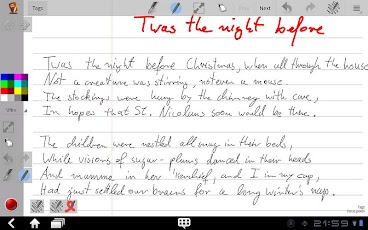 Tags
Prev
Next
Twas the night before
Twas the night before Christmas, when all through the house
Not a creature was stirring, not even a mouse.
The stockings were hung by the chimney with care,
In hopes that St. Nicolaus soon would be there.
The children were nestled all snug in their beds,
While visions of sugar-plums danced in their heads
And mamma in her 'kerchief, and I in my cap,
Had just settled our brains for a long winter's nap.
Tags
21:59